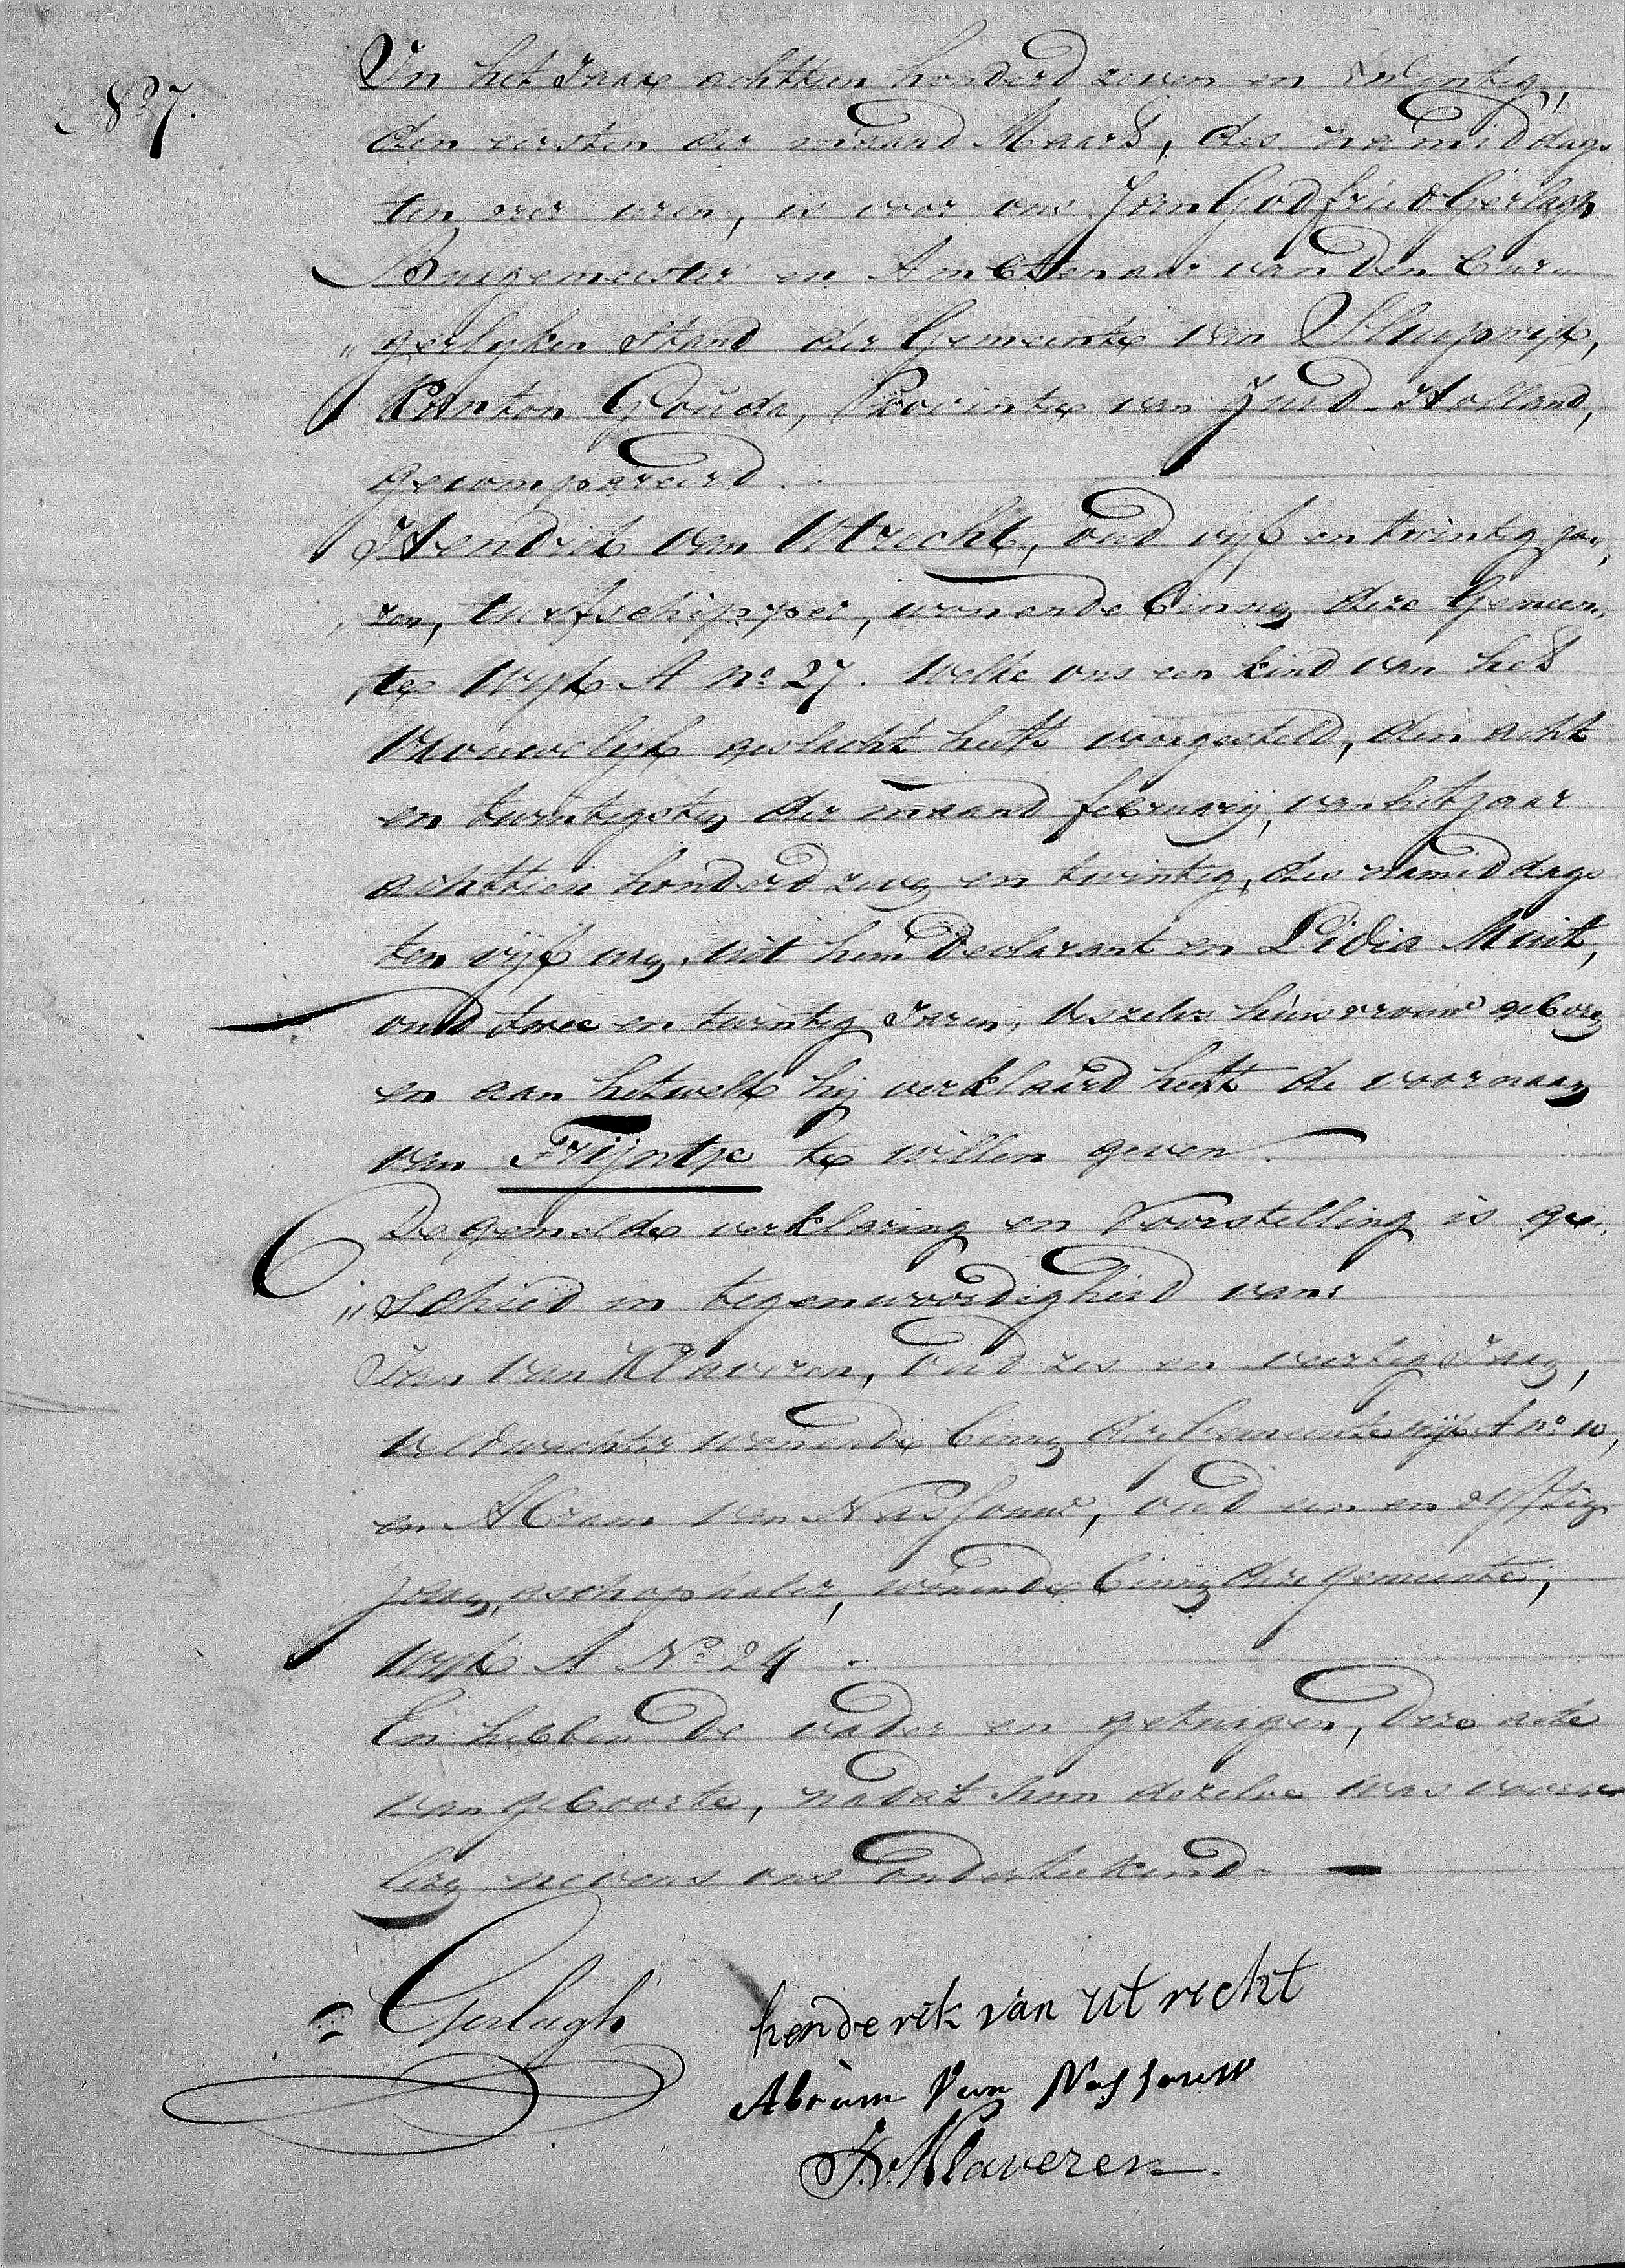 No 7.
In het Jaar achttien honderd zeven en twintig,
den eersten der maand Maart, des namiddags
ten vier uren, is voor ons Jan Godfried Gerlagh
Burgemeester en Ambtenaar van den Bur„
„gerlyken Stand der Gemeente van Sluipwijk,
Kanton Gouda, Provintie van Zuid-Holland,
gecompareerd.
Hendrik van Utrecht, oud vijf en twintig ja„
„ren, turfschipper, wonende binnen deze Gemeen„
te Wyk A No 27. Welke ons een kind van het
vrouwelijk geslacht heeft voorgesteld, den acht
en twintigsten der maand februarij, van het jaar
achttien honderd zeven en twintig, des namiddags
ten vijf uren, uit hem Declarant en Lidia Muit,
oud twee en twintig Jaren, deszelvs huisvrouw geboren
en aan hetwelk hij verklaard heeft de voornaam
van Trijntje te willen geven.
De gemelde verklaring en Voorstelling is ge„
„schied in tegenwoordigheid van:
Jan van Klaveren, oud zes en veertig Jaren,
veldwachter wonende binnen deze Gemeente wijk A no 10,
en Abram van Nassouw, oud een en vyftig
jaren, aschophaler, wonende binnen deze gemeente,
wyk A No 24
En hebben de vader en getuigen, deze acte
van geboorte, nadat hun dezelve was voorge
lezen nevens ons onderteekend.
Gerlagh
henderik van utrecht
Abram Van Nassouw
J. v. Klaveren.